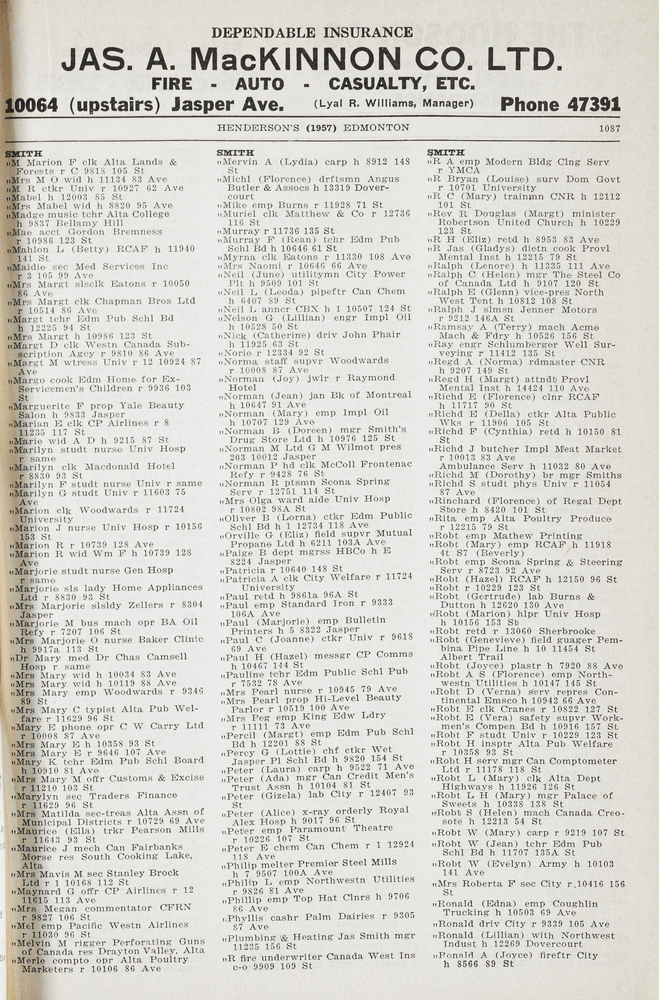 DEPENDABLE INSURANCE
JAS. A. MacKINNON CO. LTD.
FIRE - AUTO - CASUALTY, ETC.
10064 (upstairs) Jasper Ave. (Lyal R. Williams, Manager) Phone 47391
HENDERSON'S (1957) EDMONTON 1087
SMITH
"M Marion F clk Alta Lands &
Forests r C 9818 105 St
"Mrs M O wid h 11134 83 Ave
"M R ctkr Univ r 10927 62 Ave
"Mabel h 12003 85 St
"Mrs Mabel wid h 8820 95 Ave
"Madge music tchr Alta College
h 9837 Bellamy Hill
"Mae acct Gordon Bremness
r 10986 123 St
"Mahlon L (Betty) RCAF h 11940
141 St
"Maidie sec Med Services Inc
r 3 105 99 Ave
"Mrs Margt slsclk Eatons r 10050
86 Ave
"Mrs Margt clk Chapman Bros Ltd
r 10514 86 Ave
"Margt tchr Edm Pub Schl Bd
h 12225 94 St
"Mrs Margt h 10986 123 St
"Margt D clk Westn Canada Sub-
scription Agcy r 9810 86 Ave
"Margt M wtress Univ r 12 10924 87
Ave
"Margo cook Edm Home for Ex-
Servicemen's Children r 9936 103
St
"Marguerite F prop Yale Beauty
Salon h 9833 Jasper
"Marian E clk CP Airlines r 8
11235 117 St
"Marie wid A D h 9215 87 St
"Marilyn studt nurse Univ Hosp
r same
"Marilyn clk Macdonald Hotel
r 8830 93 St
"Marilyn F studt nurse Univ r same
"Marilyn G studt Univ r 11603 75
Ave
"Marion clk Woodwards r 11724
University
"Marion J nurse Univ Hosp r 10156
153 St
"Marion R r 10739 128 Ave
"Marion R wid Wm F h 10739 128
Ave
"Marjorie studt nurse Gen Hosp
r same
"Marjorie sls lady Home Appliances
Ltd r 8830 93 St
"Mrs Marjorie slsldy Zellers r 8304
Jasper
"Marjorie M bus mach opr BA Oil
Refy r 7207 106 St
"Mrs Marjorie O nurse Baker Clinic
h 9917a 113 St
"Dr Mary med Dr Chas Camsell
Hosp r same
"Mrs Mary wid h 10034 83 Ave
"Mrs Mary wid h 10119 88 Ave
"Mrs Mary emp Woodwards r 9346
89 St
"Mrs Mary C typist Alta Pub Wel-
fare r 11629 96 St
"Mary E phone opr C W Carry Ltd
r 10008 87 Ave
"Mrs Mary E h 10358 93 St
"Mrs Mary E r 9646 107 Ave
"Mary K tchr Edm Pub Schl Board
h 10910 81 Ave
"Mrs Mary M offr Customs & Excise
r 11210 103 St
"Marylyn sec Traders Finance
r 11629 96 St
"Mrs Matilda sec-treas Alta Assn of
Municipal Districts r 10729 69 Ave
"Maurice (Ella) trkr Pearson Mills
r 11643 93 St
"Maurice J mech Can Fairbanks
Morse res South Cooking Lake,
Alta
"Mrs Mavis M sec Stanley Brock
Ltd r 1 10168 112 St
"Maynard G offr CP Airlines r 12
11615 113 Ave
"Mrs Megan commentator CFRN
r 9827 106 St
"Mel emp Pacific Westn Airlines
r 11030 96 St
"Melvin M rigger Perforating Guns
of Canada res Drayton Valley, Alta
"Merle compto opr Alta Poultry
Marketers r 10106 86 Ave
SMITH
"Mervin A (Lydia) carp h 8912 148
St
"Michl (Florence) drftsmn Angus
Butler & Assocs h 13319 Dover-
court
"Mike emp Burns r 11928 71 St
"Muriel clk Matthew & Co r 12736
116 St
"Murray r 11736 135 St
"Murray F (Rean) tchr Edm Pub
Schl Bd h 10646 61 St
"Myrna clk Eatons r 11330 108 Ave
"Mrs Naomi r 10646 66 Ave
"Neil (June) utilitymn City Power
Plt h 9509 101 St
"Neil L (Leoda) pipeftr Can Chem
h 6407 89 St
"Neil L anncr CBX h 1 10507 124 St
"Nelson G (Lillian) engr Impl Oil
h 10528 50 St
"Nick (Catherine) driv John Phair
h 11925 63 St
"Norie r 12334 92 St
"Norma staff supvr Woodwards
r 10008 87 Ave
"Norman (Joy) jwlr r Raymond
Hotel
"Norman (Jean) jan Bk of Montreal
h 10647 91 Ave
"Norman (Mary) emp Impl Oil
h 10707 129 Ave
"Norman B (Doreen) mgr Smith's
Drug Store Ltd h 10976 125 St
"Norman M Ltd G M Wilmot pres
203 10012 Jasper
"Norman P hd clk McColl Frontenac
Refy r 9428 76 St
"Norman R ptsmn Scona Spring
Serv r 12751 114 St
"Mrs Olga ward aide Univ Hosp
r 10802 98A St
"Oliver B (Lorna) ctkr Edm Public
Schl Bd h 1 12734 118 Ave
"Orville G (Eliz) field supvr Mutual
Propane Ltd h 6211 103A Ave
"Paige B dept mgrss HBCo h E
8224 Jasper
"Patricia r 10640 148 St
"Patricia A clk City Welfare r 11724
University
"Paul retd h 9861a 96A St
"Paul emp Standard Iron r 9333
106A Ave
"Paul (Marjorie) emp Bulletin
Printers h 5 8322 Jasper
"Paul C (Joanne) ctkr Univ r 9618
69 Ave
"Paul H (Hazel) messgr CP Comms
h 10467 144 St
"Pauline tchr Edm Public Schl Pub
r 7532 78 Ave
"Mrs Pearl nurse r 10945 79 Ave
"Mrs Pearl prop Hi-Level Beauty
Parlor r 10519 100 Ave
"Mrs Peg emp King Edw Ldry
r 11111 73 Ave
"Percil (Margt) emp Edm Pub Schl
Bd h 12201 88 St
"Percy G (Lottie) chf ctkr Wet
Jasper Pl Schl Bd h 9820 154 St
"Peter (Laura) carp h 9522 71 Ave
"Peter (Ada) mgr Can Credit Men's
Trust Assn h 10104 81 St
"Peter (Gizela) lab City r 12407 93
St
"Peter (Alice) x-ray orderly Royal
Alex Hosp h 9017 96 St
"Peter emp Paramount Theatre
r 10226 107 St
"Peter E chem Can Chem r 1 12924
118 Ave
"Philip melter Premier Steel Mills
h 7 9507 100A Ave
"Philip L emp Northwestn Utilities
r 9826 81 Ave
"Phillip emp Top Hat Clnrs h 9706
86 Ave
"Phyllis cashr Palm Dairies r 9305
87 Ave
"Plumbing & Heating Jas Smith mgr
11235 156 St
"R fire underwriter Canada West Ins
c-o 9909 109 St
SMITH
"R A emp Modern Bldg Clng Serv
r YMCA
"R Bryan (Louise) surv Dom Govt
r 10701 University
"R C (Mary) trainmn CNR h 12112
101 St
"Rev R Douglas (Margt) minister
Robertson United Church h 10229
123 St
"R H (Eliz) retd h 8953 83 Ave
"R Jas (Gladys) dietn cook Provl
Mental Inst h 12215 79 St
"Ralph (Lenore) h 11335 111 Ave
"Ralph C (Helen) mgr The Steel Co
of Canada Ltd h 9107 120 St
"Ralph E (Glenn) vice-pres North
West Tent h 10812 108 St
"Ralph J slmsn Jenner Motors
r 9212 146A St
"Ramsay A (Terry) mach Acme
Mach & Fdry h 10526 156 St
"Ray engr Schlumberger Well Sur-
veying r 11412 135 St
"Regd A (Norma) rdmaster CNR
h 9207 149 St
"Regd H (Margt) attndt Provl
Mental Inst h 14424 110 Ave
"Richd E (Florence) clnr RCAF
h 11717 90 St
"Richd E (Della) ctkr Alta Public
Wks r 11906 105 St
"Richd F (Cynthia) retd h 10150 81
St
"Richd J butcher Impl Meat Market
r 10013 83 Ave
Ambulance Serv h 11032 80 Ave
"Richd M (Dorothy) br mgr Smiths
"Richd S studt phys Univ r 11054
87 Ave
"Rinchard (Florence) of Regal Dept
Store h 8420 101 St
"Rita emp Alta Poultry Produce
r 12215 79 St
"Robt emp Mathew Printing
"Robt (Mary) emp RCAF h 11918
4t S7 (Beverly)
"Robt emp Scona Spring & Steering
Serv r 8723 92 Ave
"Robt (Hazel) RCAF h 12150 96 St
"Robt r 10229 123 St
"Robt (Gertrude) lab Burns &
Dutton h 12620 130 Ave
"Robt (Marion) hlpr Univ Hosp
h 10156 153 St
"Robt retd r 13060 Sherbrooke
"Robt (Genevieve) field guager Pem-
bina Pipe Line h 10 11454 St
Albert Trail
"Robt (Joyce) plastr h 7920 88 Ave
"Robt A S (Florence) emp North-
westn Utilities h 10147 145 St
"Robt D (Verna) serv repres Con-
tinental Emsco h 10942 66 Ave
"Robt E clk Cranes r 10822 127 St
"Robt E (Vera) safety supvr Work-
men's Compen Bd h 10916 157 St
"Robt F studt Univ r 10229 123 St
"Robt H insptr Alta Pub Welfare
r 10358 93 St
"Robt H serv mgr Can Comptometer
Ltd r 11178 118 St
"Robt L (Mary) clk Alta Dept
Highways h 11926 126 St
"Robt L H (Mary) mgr Palace of
Sweets h 10338 138 St
"Robt S (Helen) mach Canada Creo-
sote h 12213 54 St
"Robt W (Mary) carp r 9219 107 St
"Robt W (Jean) tchr Edm Pub
Schl Bd h 11707 135A St
"Robt W (Evelyn) Army h 10103
141 Ave
"Mrs Roberta F sec City r,10416 156
St
"Ronald (Edna) emp Coughlin
Trucking h 10503 69 Ave
"Ronald driv City r 9339 105 Ave
"Ronald (Lillian) with Northwest
Indust h 12269 Dovercourt
"Ronald A (Joyce) fireftr City
h 8566 89 St